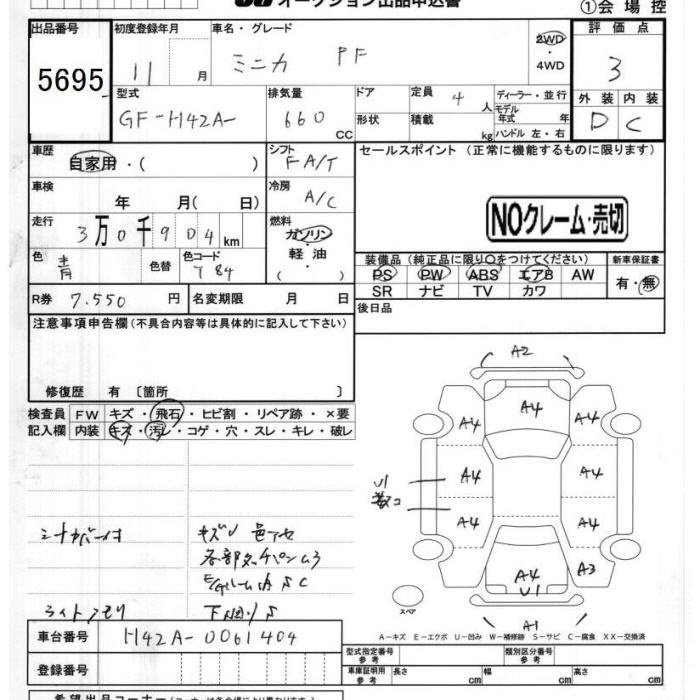 オークション出品申込書
①会場控
出品番号 初度登録年月 車名・グレード 評価点
5695 11 月 ミニカ PF 2WD・4WD 3
型式 排気量 ドア 定員 ディーラー・並行 外装 内装
GF-H42A- 660 CC 形状 4人 積載 kg モデル年式 年 ハンドル 左・右 D C
車歴 シフト セールスポイント (正常に機能するものに限ります)
自家用・( ) FA/T
車検 冷房
年 月( 日) A/C
NOクレーム・売切
走行 燃料
3万0千904km ガソリン・軽油・( )
色 色替 色コード 装備品(純正品に限り○をつけてください) 新車保証書
青 T84 PS PW ABS エアB AW 有・無
SR ナビ TV カワ
R券 7.550円 名変期限 月 日 後日品
注意事項申告欄(不具合内容等は具体的に記入して下さい)
修復歴 有 〔箇所 〕
検査員 FW キズ・飛石・ヒビ割・リペア跡・×要
記入欄 内装 キズ・汚レ・コゲ・穴・スレ・キレ・破レ
A2
A4
A4 A4
A4 A4
U1
A4 A4
シートカバー付 キズU 色アセ
A4 U1 A3
ライトクモリ
スペア
A1
A-キズ E-エクボ U-凹み W-補修跡 S-サビ C-腐食 XX-交換済
車台番号 H42A-0061404
登録番号
型式指定番号 参考 類別区分番号 参考
車庫証明用 参考 長さ cm 幅 cm 高さ cm
希望出品コーナー